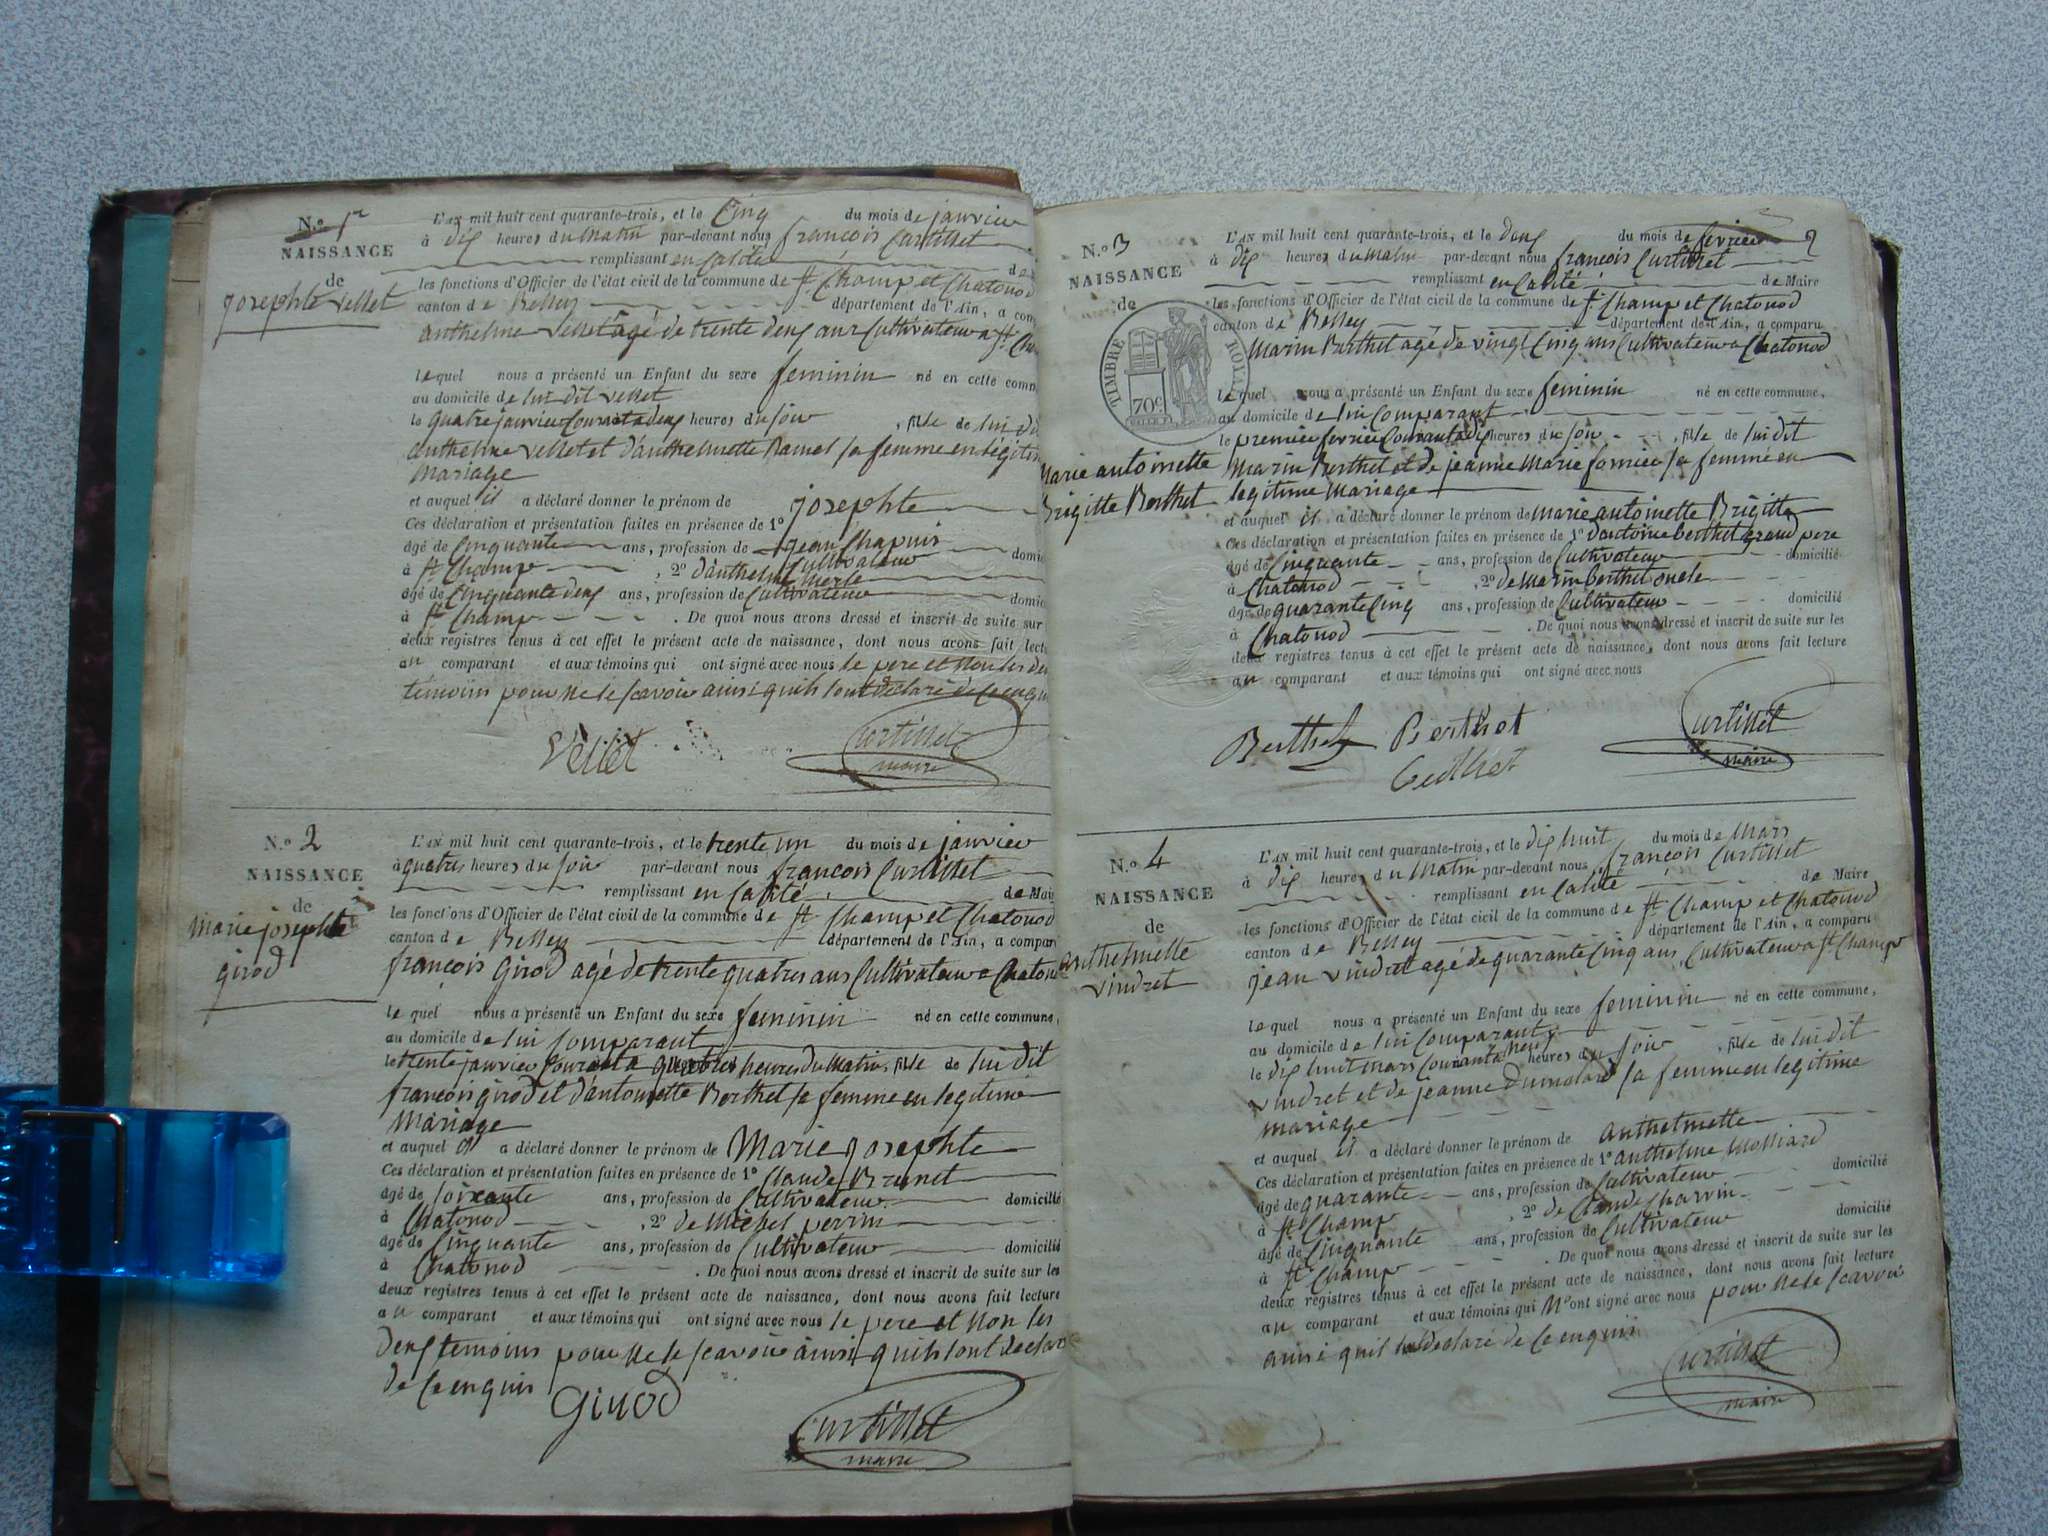 N.o 1er
NAISSANCE
de
josephte vellet
L'AN mil huit cent quarante-trois, et le Cinq du mois de janvier
à dix heures du matin par-devant nous françois Curtillet
remplissant en Calité de
les fonctions d'Officier de l'état civil de la commune de St Champ et Chatonod
canton de Belley département de l'Ain, a com
anthelme vellet agé de trente deux ans Cultivateur a St Ch
lequel nous a présenté un Enfant du sexe feminin né en cette comm
au domicile de lui dit vellet
le quatre janvier Courant a deux heures du soir , fille de lui di
anthelme vellet et d'anthelmette Ramel sa femme en légitim
mariage
et auquel il a déclaré donner le prénom de josephte
Ces déclaration et présentation faites en présence de 1o jean Chapuis
âgé de Cinquante ans, profession de Cultivateur domic
à St Champ , 2o d'anthelme merle
âgé de Cinquante deux ans, profession de Cultivateur domic
à St Champ . De quoi nous avons dressé et inscrit de suite sur
deux registres tenus à cet effet le présent acte de naissance, dont nous avons fait lectu
au comparant et aux témoins qui ont signé avec nous le pere et non les deu
témoins pour ne le scavoir ainsi quils ont déclaré de ce enqui
Vellet Curtillet
maire
N.o 2
NAISSANCE
de
marie josephte
girod
L'AN mil huit cent quarante-trois, et le trente un du mois de janvier
à quatres heures du soir par-devant nous françois Curtillet
remplissant en Calité de Mair
les fonctions d'Officier de l'état civil de la commune de St Champ et Chatonod
canton de Belley département de l'Ain, a compar
françois Girod agé de trente quatres ans Cultivateur a Chatono
lequel nous a présenté un Enfant du sexe feminin né en cette commune,
au domicile de lui Comparant
le trente janvier Courant a quatres heures du matin, fille de lui dit
françois girod et d'antoinette Berthet sa femme en legitime
mariage
et auquel il a déclaré donner le prénom de Marie josephte
Ces déclaration et présentation faites en présence de 1o Claude Brunet
âgé de soixante ans, profession de Cultivateur domicilié
à Chatonod , 2o de Michel perrin
âgé de Cinquante ans, profession de Cultivateur domicilié
à Chatonod . De quoi nous avons dressé et inscrit de suite sur les
deux registres tenus à cet effet le présent acte de naissance, dont nous avons fait lecture
au comparant et aux témoins qui ont signé avec nous le pere et non les
deux temoins pour ne le scavoir ainsi quils ont declaré
de ce enquis
Girod Curtillet
maire
2
N.o 3
NAISSANCE
de
TIMBRE ROYAL
70c
Marie antoinette
Brigitte Berthet
L'AN mil huit cent quarante-trois, et le deux du mois de fevrier
à dix heures du matin par-devant nous françois Curtillet
remplissant en Calité de Maire
les fonctions d'Officier de l'état civil de la commune de St Champ et Chatonod
canton de Belley département de l'Ain, a comparu
Marin Berthet agé de vingt Cinq ans Cultivateur a Chatonod
lequel nous a présenté un Enfant du sexe feminin né en cette commune,
au domicile de lui Comparant
le premier fevrier Courant a dix heures du soir , fille de lui dit
Marin Berthet et de jeanne Marie fornier sa femme en
legitime Mariage
et auquel il a déclaré donner le prénom de marie antoinette Brigitte
Ces déclaration et présentation faites en présence de 1o d'antoine berthet grand pere
âgé de Cinquante ans, profession de Cultivateur domicilié
à Chatonod , 2o de Marin berthet oncle
âgé de quarante Cinq ans, profession de Cultivateur domicilié
à Chatonod . De quoi nous avons dressé et inscrit de suite sur les
deux registres tenus à cet effet le présent acte de naissance, dont nous avons fait lecture
au comparant et aux témoins qui ont signé avec nous
Berthet Berthet Curtillet
Berthet maire
N.o 4
NAISSANCE
de
anthelmette
vindret
L'AN mil huit cent quarante-trois, et le dix huit du mois de Mars
à dix heures du Matin par-devant nous françois Curtillet
remplissant en Calité de Maire
les fonctions d'Officier de l'état civil de la commune de St Champ et Chatonod
canton de Belley département de l'Ain, a comparu
jean vindret agé de quarante Cinq ans, Cultivateur a St Champ
lequel nous a présenté un Enfant du sexe feminin né en cette commune,
au domicile de lui Comparant
le dix huit Mars Courant a neuf heures du soir , fille de lui dit
vindret et de jeanne Dumolard sa femme en legitime
mariage
et auquel il a déclaré donner le prénom de anthelmette
Ces déclaration et présentation faites en présence de 1o anthelme Molliard
âgé de quarante ans, profession de Cultivateur domicilié
à St Champ , 2o de Claude Charvin
âgé de Cinquante ans, profession de Cultivateur domicilié
à St Champ . De quoi nous avons dressé et inscrit de suite sur les
deux registres tenus à cet effet le présent acte de naissance, dont nous avons fait lecture
au comparant et aux témoins qui N'ont signé avec nous pour ne le scavoir
ainsi quil declaré de ce enquis
Curtillet
maire